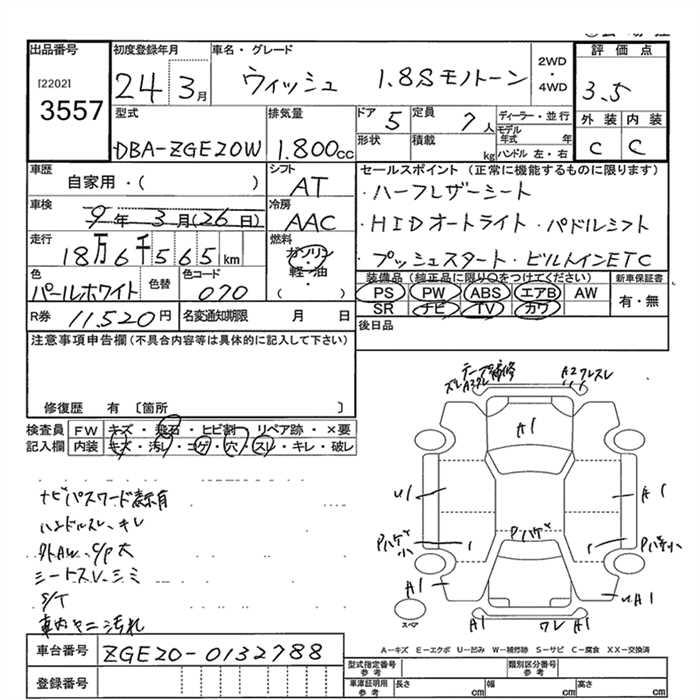 出品番号
[2202]
3557
初度登録年月
24 3月
車名・グレード
ウィッシュ 1.8Sモノトーン
2WD
・
4WD
評価点
3.5
外装 内装
C C
型式
DBA-ZGE20W
排気量
1.800cc
ドア 5
形状
定員 7人
積載 kg
ディーラー・並行
モデル年式 年
ハンドル 左・右
車歴
自家用・( )
シフト
AT
車検
9年3月(26日)
冷房
AAC
走行
18万6千565km
燃料
ガソリン
軽油
( )
色
パールホワイト
色替
色コード
070
R券 11,520円
名変通知期限 月 日
セールスポイント (正常に機能するものに限ります)
・ハーフレザーシート
・HIDオートライト ・パドルシフト
・プッシュスタート・ビルトインETC
装備品 (純正品に限り○をつけてください)
PS PW ABS エアB AW
SR ナビ TV カワ
新車保証書
有・無
後日品
注意事項申告欄(不具合内容等は具体的に記入して下さい)
修復歴 有 〔箇所 〕
検査員 FW キズ・飛石・ヒビ割・リペア跡・×要
記入欄 内装 キズ・汚レ・コゲ・穴・スレ・キレ・破レ
ナビパスワード表示有
ハンドルスレ、キレ
外AW、c/p大
シートスレ、シミ
S/T
車内ヤニ汚れ
テープ補修
A2
A1
U1
A1
Pハゲ
Pハゲ小
Pハゲ小
A1
UA1
ワレ A1
スペア
A-キズ E-エクボ U-凹み W-補修跡 S-サビ C-腐食 XX-交換済
車台番号 ZGE20-0132788
登録番号
型式指定番号
参考
類別区分番号
参考
車庫証明用
参考
長さ cm
幅 cm
高さ cm